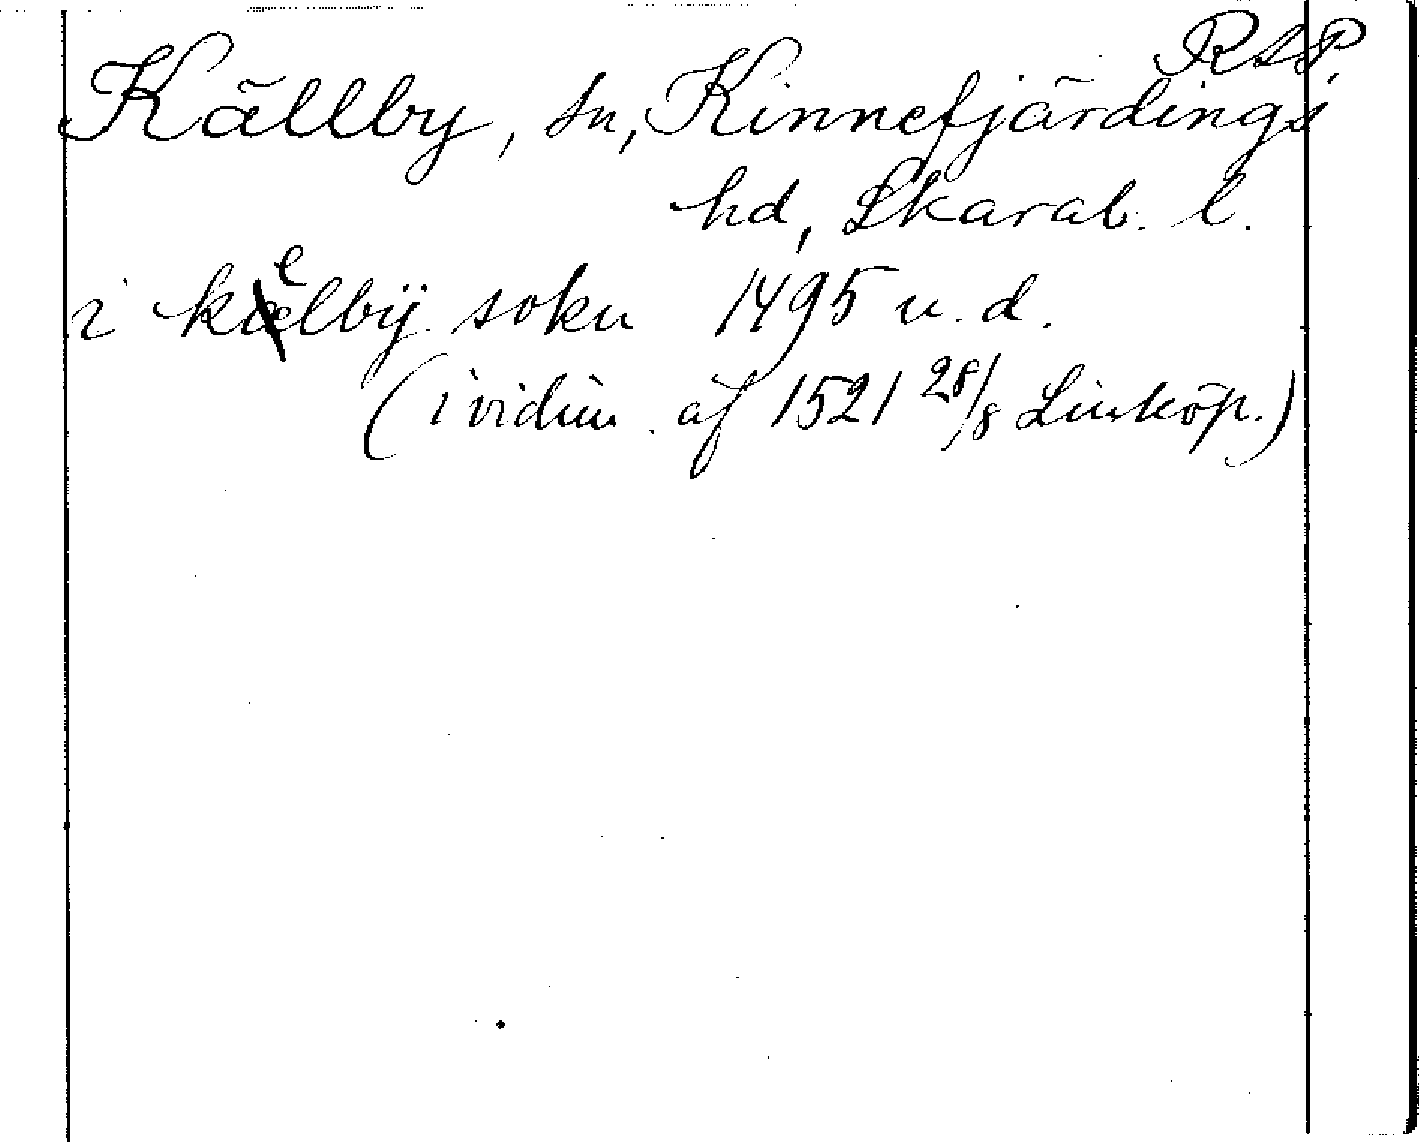 RAP.
Källby, sn, Kinnefjärdings
hd, Skarab. l.
i kelbÿ sokn 1495 u. d.
(i vidim. af 1521 28/8 Linköp.)